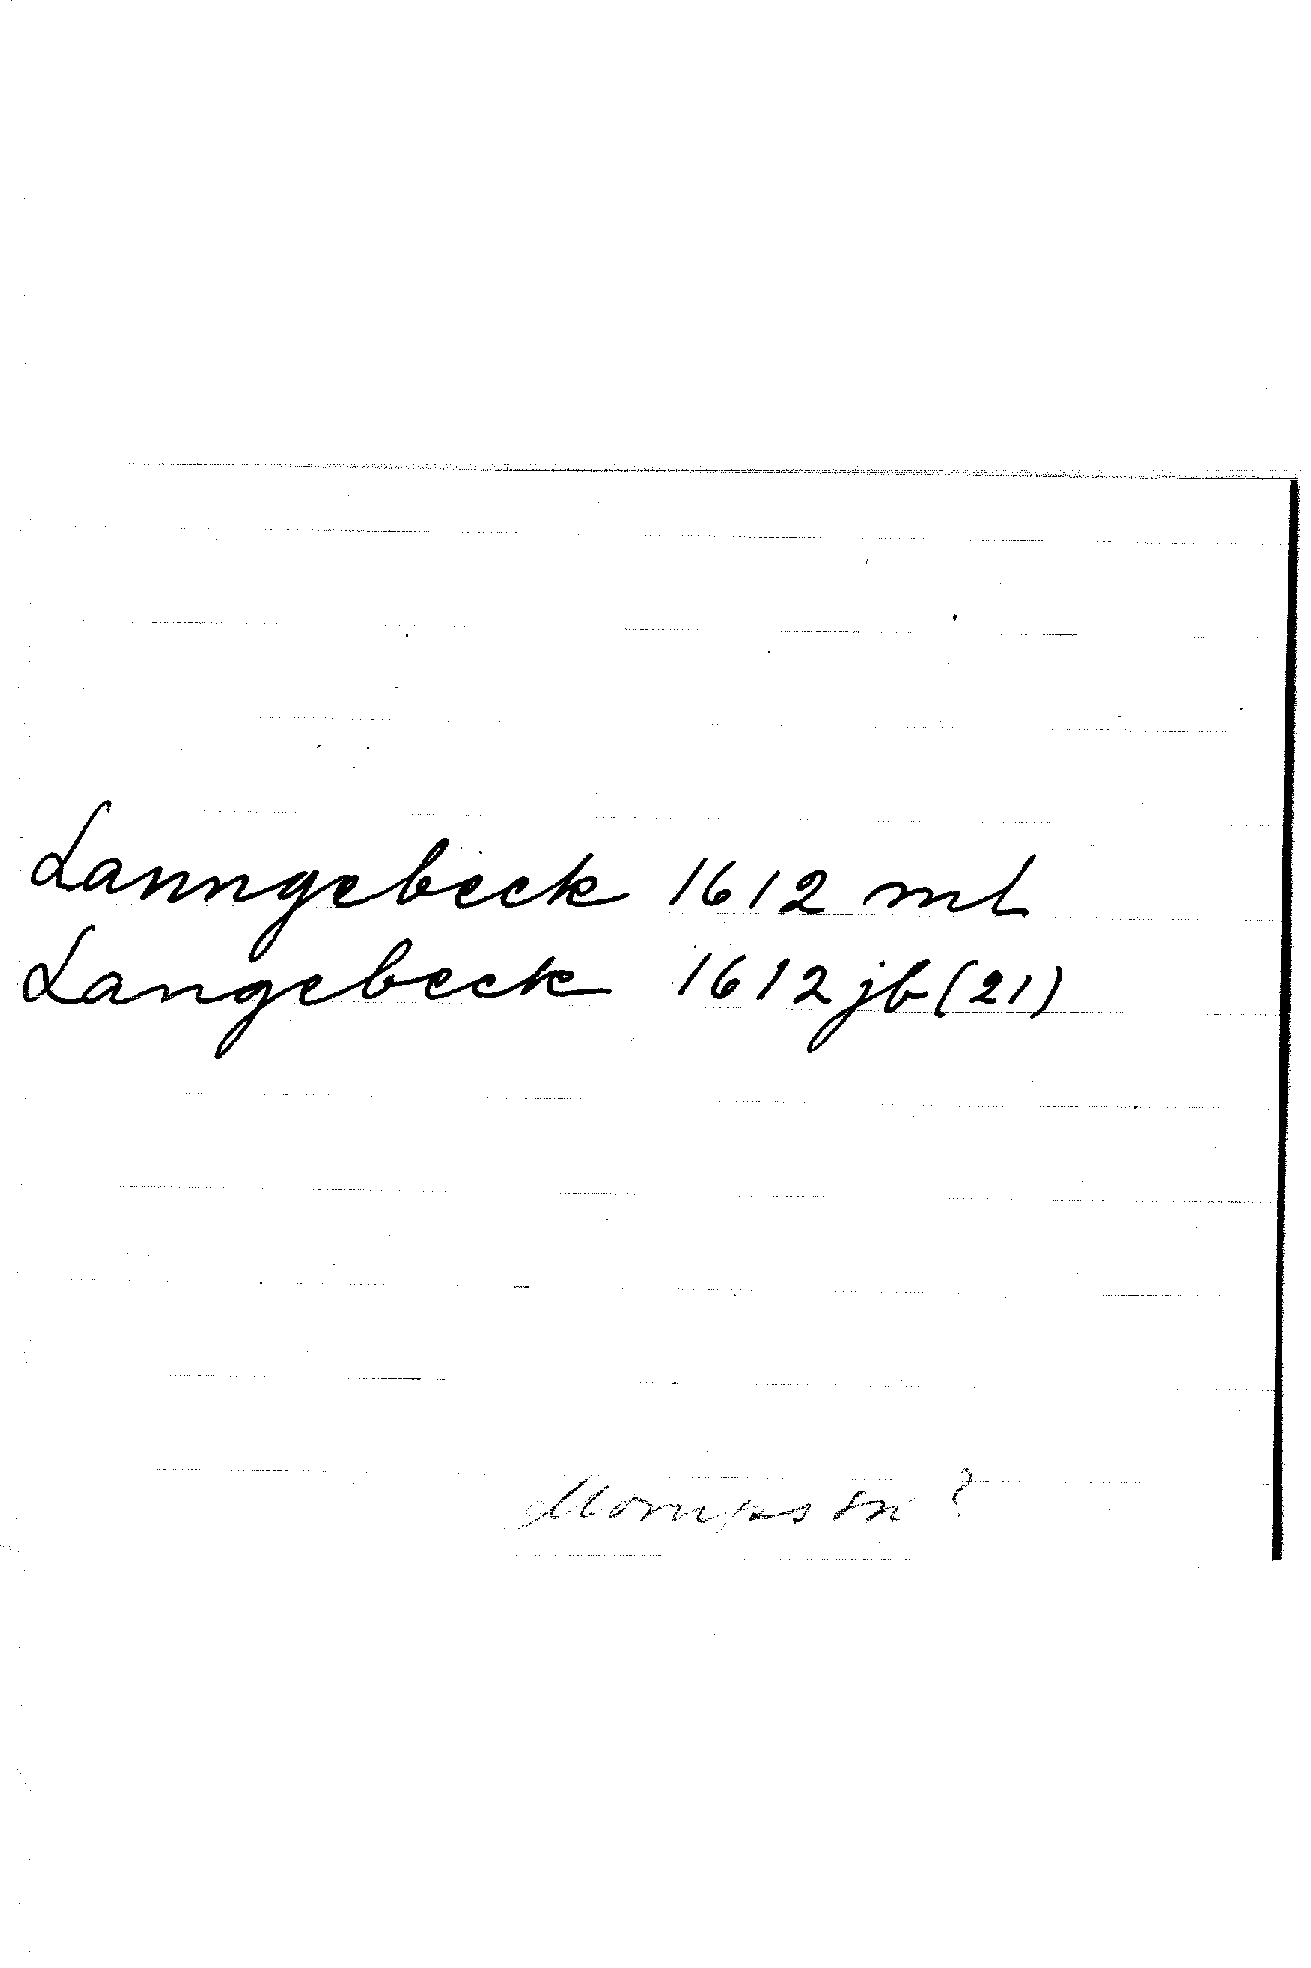 Lanngebeck 1612 ml
Langebeck 1612 jb (21)
?